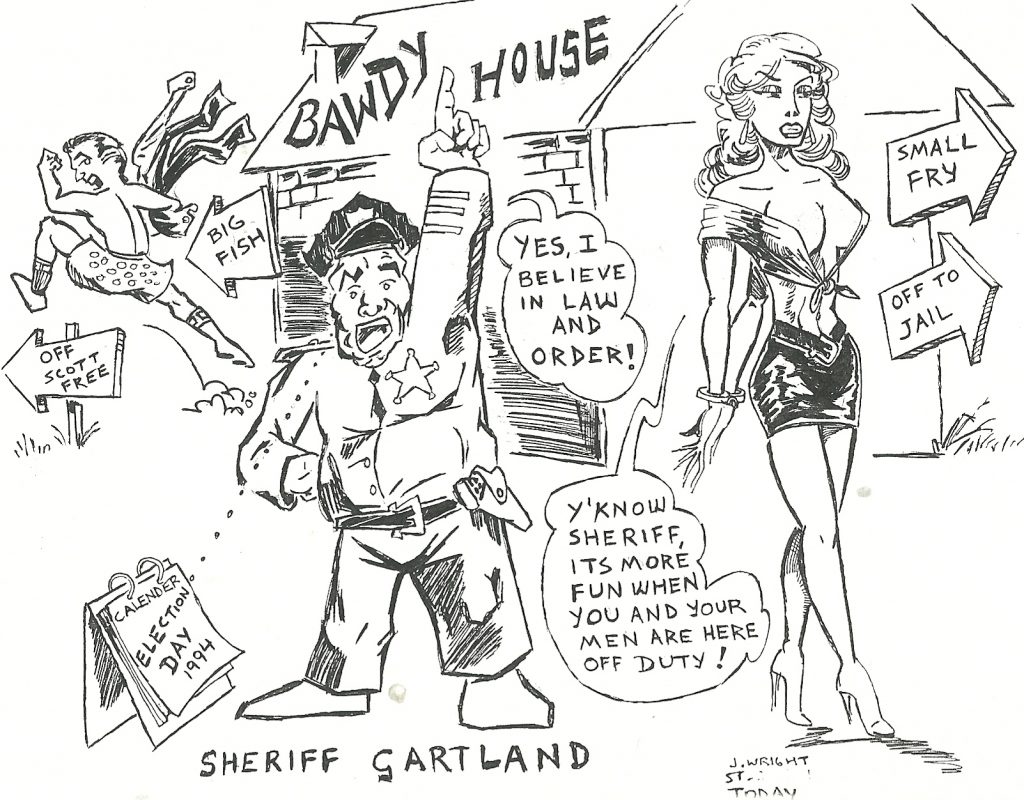 BAWDY HOUSE
SMALL
FRY
BIG
FISH
YES, I
BELIEVE
IN LAW
AND
ORDER!
OFF TO
JAIL
OFF
SCOTT
FREE
Y'KNOW
SHERIFF,
ITS MORE
FUN WHEN
YOU AND YOUR
MEN ARE HERE
OFF DUTY!
CALENDER
ELECTION
DAY
1994
SHERIFF GARTLAND
J. WRIGHT
ST.
TODAY